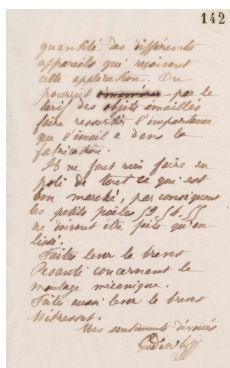 142
quantité des différents
appareils que reçoivent
cette application. On
pourrait par le
tarif des objets émaillés
faire ressortir l'importance
que l'émail a dans la
fabrication.
Il ne faut rien faire en
poli de tout ce qui est
bon marché, par conséquent
les petits poêles
ne doivent être faits qu'en
Faites lever le brevet
Pesante concernant le
moulage mécanique.
Faites aussi lever le brevet
Mes sentiments dévoués
Godin